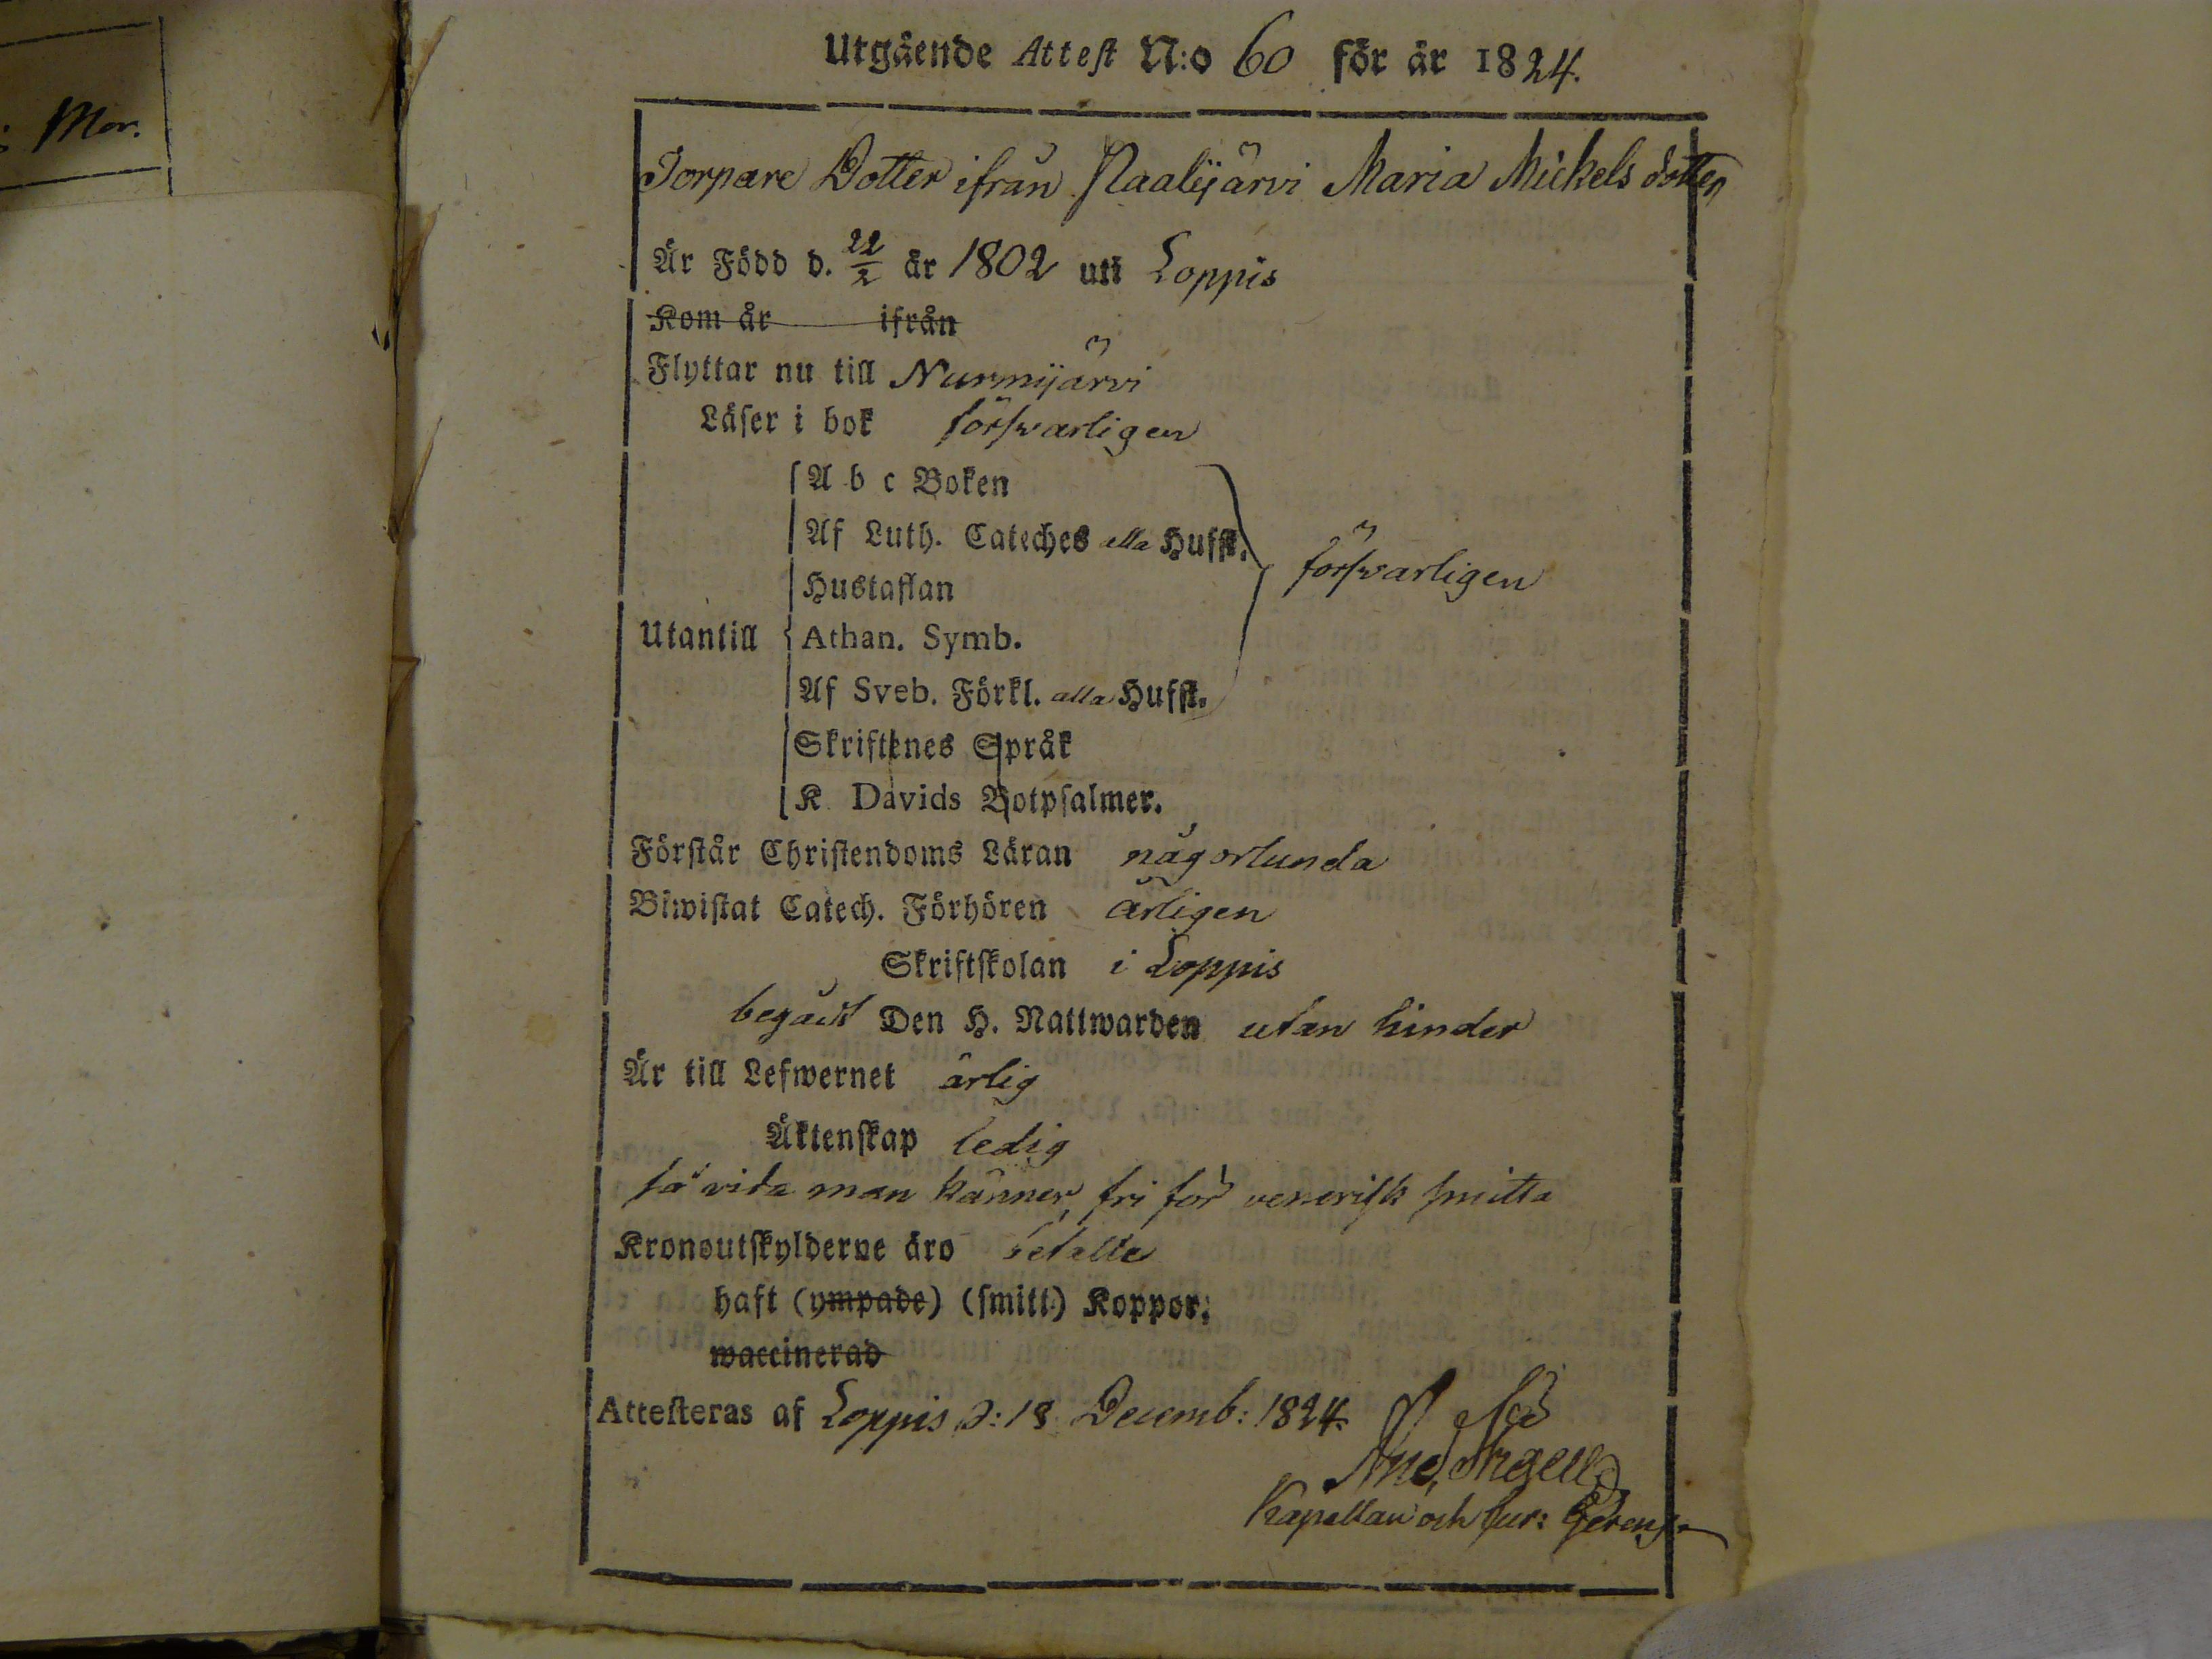 Mor.
Utgående Attest N:o 60 för år 1824.
Torpare Dotter ifrån Naalijärvi Maria Mickels dotter
Är Född d. 22/2 år 1802 uti Loppis
Kom år ifrån
Flyttar nu till Nurmijärvi
Läser i bok förswarligen
A b c Boken
Af Luth. Cateches alla Hufst.
Hustaflan
förswarligen
Utantill Athan. Symb.
Af Sveb. Förkl. alla Hufst.
Skriftenes Språk
K Davids Botpsalmer.
Förstår Christendoms Läran någorlunda
Biwistat Catech. Förhören årligen
Skriftskolan i Loppis
begått Den H. Nattwarden utan hinder
Är till Lefwernet ärlig
Äktenskap ledig
så vida man känner, fri för venerisk smitta
Kronoutskylderne äro betalte
haft (ympade) (smitt) Koppor.
waccinerad
Attesteras af Loppis d: 18 Decemb: 1824.
Kapellan och